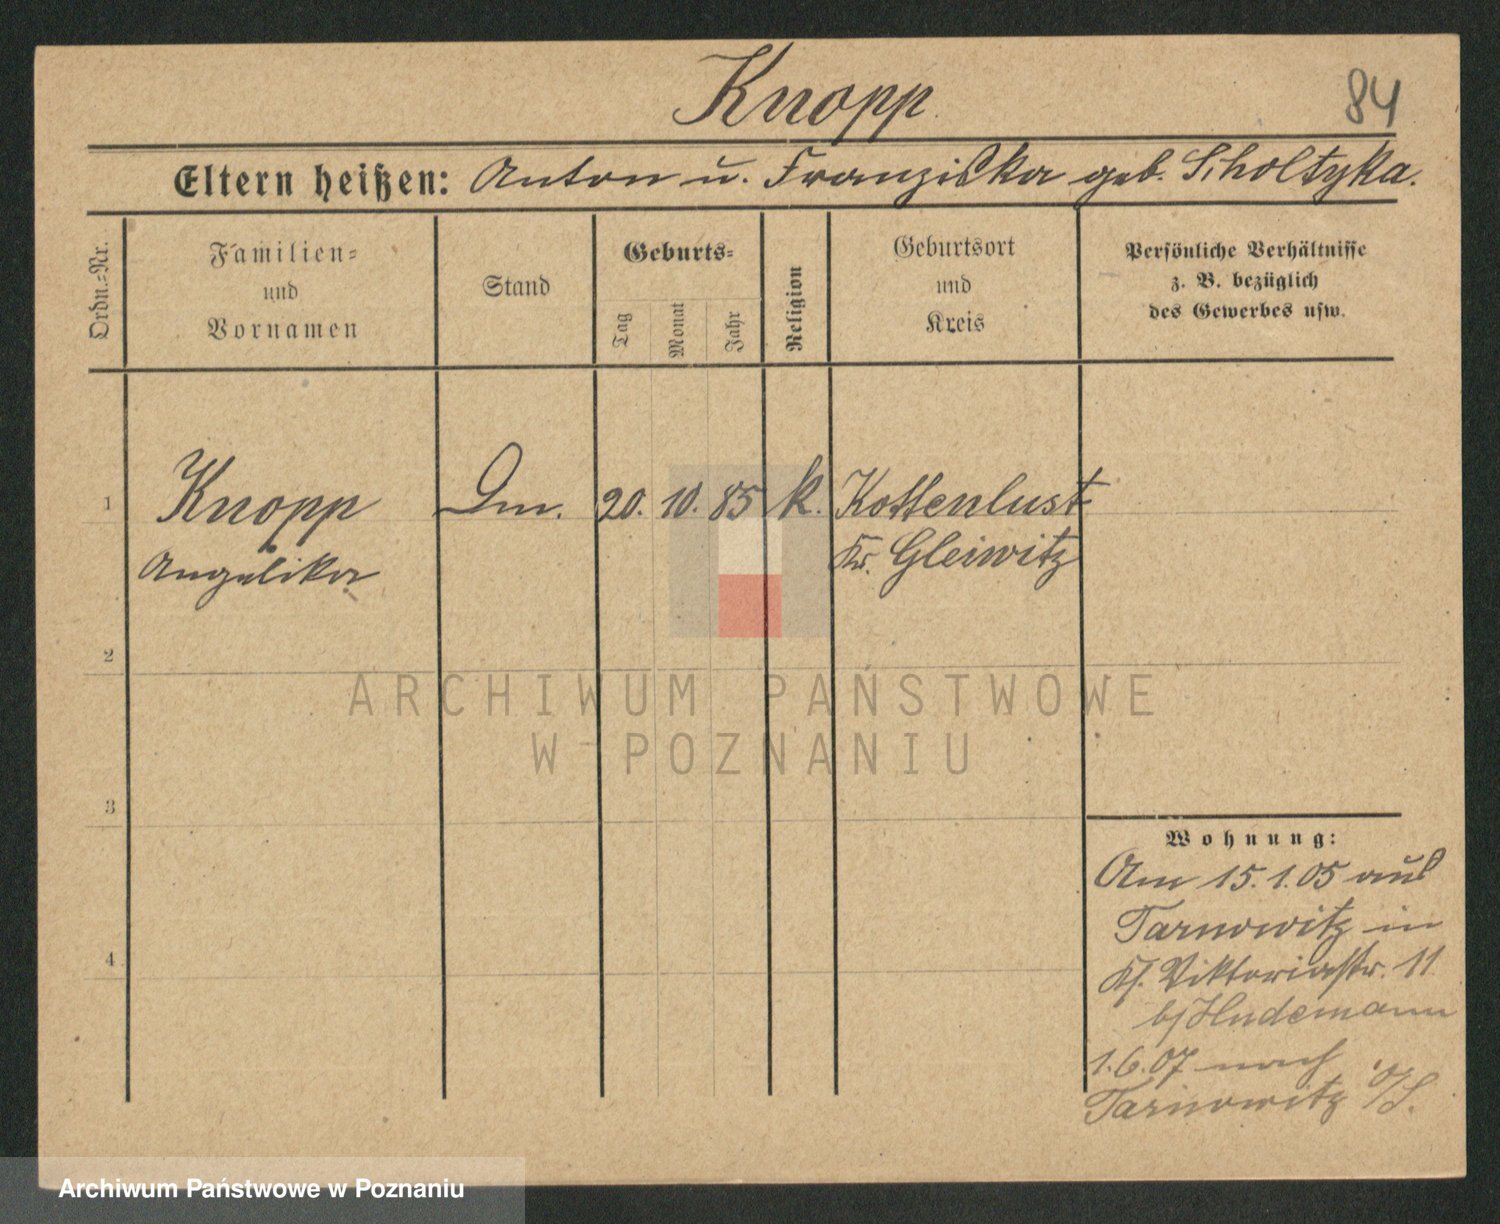 Knopp
84
Eltern heißen: Anton u. Franziska geb. Scholtyka.
Ordn.-Nr.
Familien- und Vornamen
Stand
Geburts-
Tag
Monat
Jahr
Religion
Geburtsort und Kreis
Persönliche Verhältnisse
z. B. bezüglich
des Gewerbes usw.
1
Knopp
20. 10. 85
k.
Kottenlust
Angelika
Kr. Gleiwitz
2
ARCHIWUM PAŃSTWOWE
W POZNANIU
3
Wohnung:
Am 15.1.05 aus
Tarnowitz in
Viktoriastr. 11
4
b/Hudemann
1.6.07 nach
Tarnowitz O/S.
Archiwum Państwowe w Poznaniu